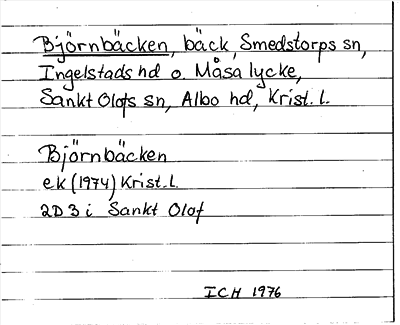 Björnbäcken, bäck, Smedstorps sn,
Ingelstads hd o. Måsalycke,
Sankt Olofs sn, Albo hd, Krist. l.
Björnbäcken
ek (1974) Krist. l.
2D 3 i Sankt Olof
ICH 1976